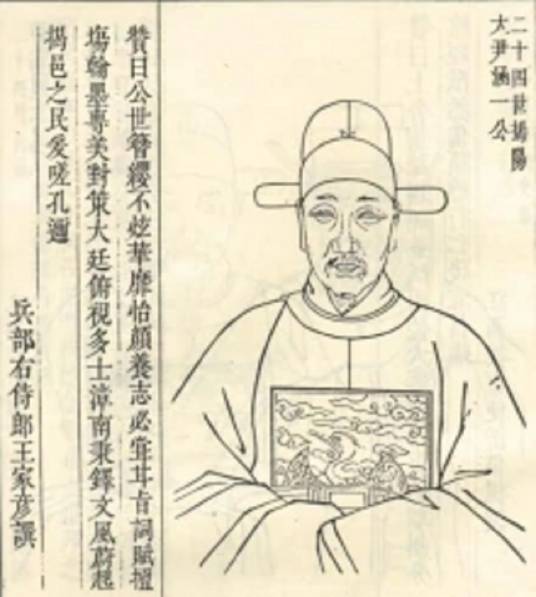 二十四世揭陽
大尹涵一公
贊曰公世簪纓不炫華靡怡顏養志必耑耳旨詞賦擅
塲翰墨專美對策大廷俯視多士漳南秉鐸文風蔚起
揭邑之民愛嗟孔邇
兵部右侍郎王家彦譔